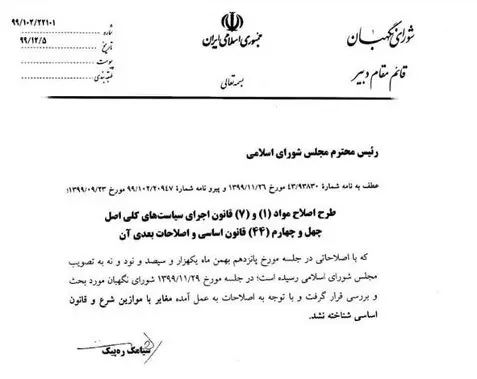 شورای نگهبان
قائم مقام دبیر
جمهوری اسلامی ایران
بسمه تعالی
شماره ۹۹/۱۰۲/۲۲۱۰۱
تاریخ ۹۹/۱۲/۵
پیوست
طبقه بندی
رئیس محترم مجلس شورای اسلامی
عطف به نامه شماره ۴۳/۹۳۸۳۰ مورخ ۱۳۹۹/۱۱/۲۶ و پیرو نامه شماره ۹۹/۱۰۲/۲۰۹۴۷ مورخ ۱۳۹۹/۰۹/۲۳؛
طرح اصلاح مواد (۱) و (۷) قانون اجرای سیاست‌های کلی اصل
چهل و چهارم (۴۴) قانون اساسی و اصلاحات بعدی آن
که با اصلاحاتی در جلسه مورخ پانزدهم بهمن ماه یکهزار و سیصد و نود و نه به تصویب
مجلس شورای اسلامی رسیده است؛ در جلسه مورخ ۱۳۹۹/۱۱/۲۹ شورای نگهبان مورد بحث
و بررسی قرار گرفت و با توجه به اصلاحات به عمل آمده مغایر با موازین شرع و قانون
اساسی شناخته نشد.
سیامک ره‌پیک